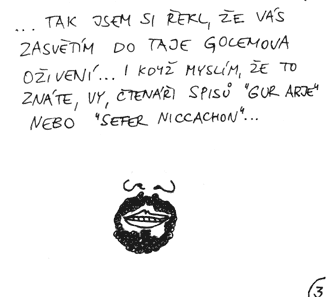 ... TAK JSEM SI ŘEKL, ŽE VÁS
ZASVĚTÍM DO TAJE GOLEMOVA
OŽIVENÍ... I KDYŽ MYSLÍM, ŽE TO
ZNÁTE, VY, ČTENÁŘI SPISŮ "GUR ARJE"
NEBO "SEFER NICCACHON"...
3